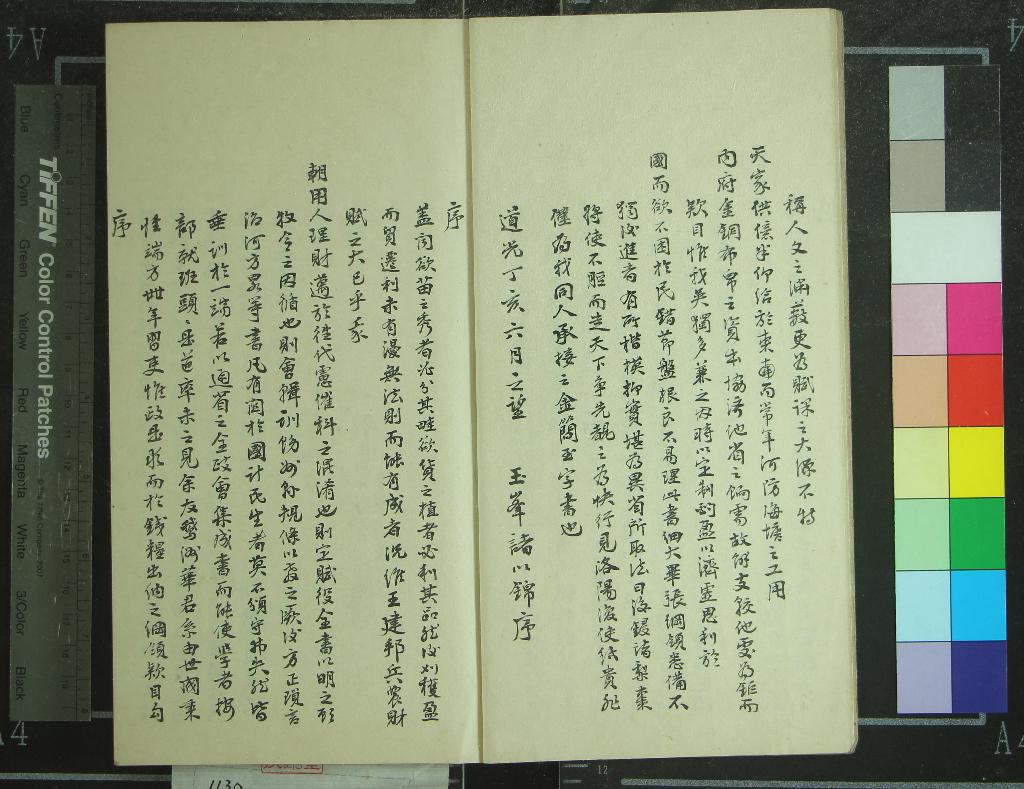 稱人文之淵藪更為賦課之大源不特
天家供億半仰給於東南而常年河防海塘之工用
內府金銅布帛之資本協濟他省之餉需故解支較他處為鉅而
款目惟我吳獨多兼之因時以定制酌盈以濟虛思利於
國而欲不困於民錯節盤根良不易理此書細大畢張綱領悉備不
獨後進者有所楷模抑實堪為異省所取法日後鋟諸梨棗
將使不脛而走天下爭先覩之為快行見洛陽復使紙貴孰
僅為我同人承接之金簡玉字書也
道光丁亥六月之望 玉峯諸以錦序
序
蓋聞欲苗之秀者必分其畦欲貨之植者必利其品然後刈穫盈
而貿遷利未有漫無法則而能有成者況維王建邦兵農財
賦之大已乎我
朝用人理財邁於往代憲催科之混淆也則定賦役全書以明之孫
牧令之因循也則會輯訓飭州縣規條以教之厥後方正瑣言
治河方畧等書凡有關於國計民生者莫不頒守弗失然皆
垂訓於一端若以通省之全政會集成書而能使學者按
部就班頭頭是道率未之見余友鶴洲華君系由世閥秉
性端方卅年習吏惟政是求而於錢糧出納之綱領款目勾
序
Blue Cyan Green Yellow Red Magenta White 3/Color Black
TIFFEN Color Control Patches
Centimetres
© The Tiffen Company, 2007
A4
A4
A4
A4
12
1130